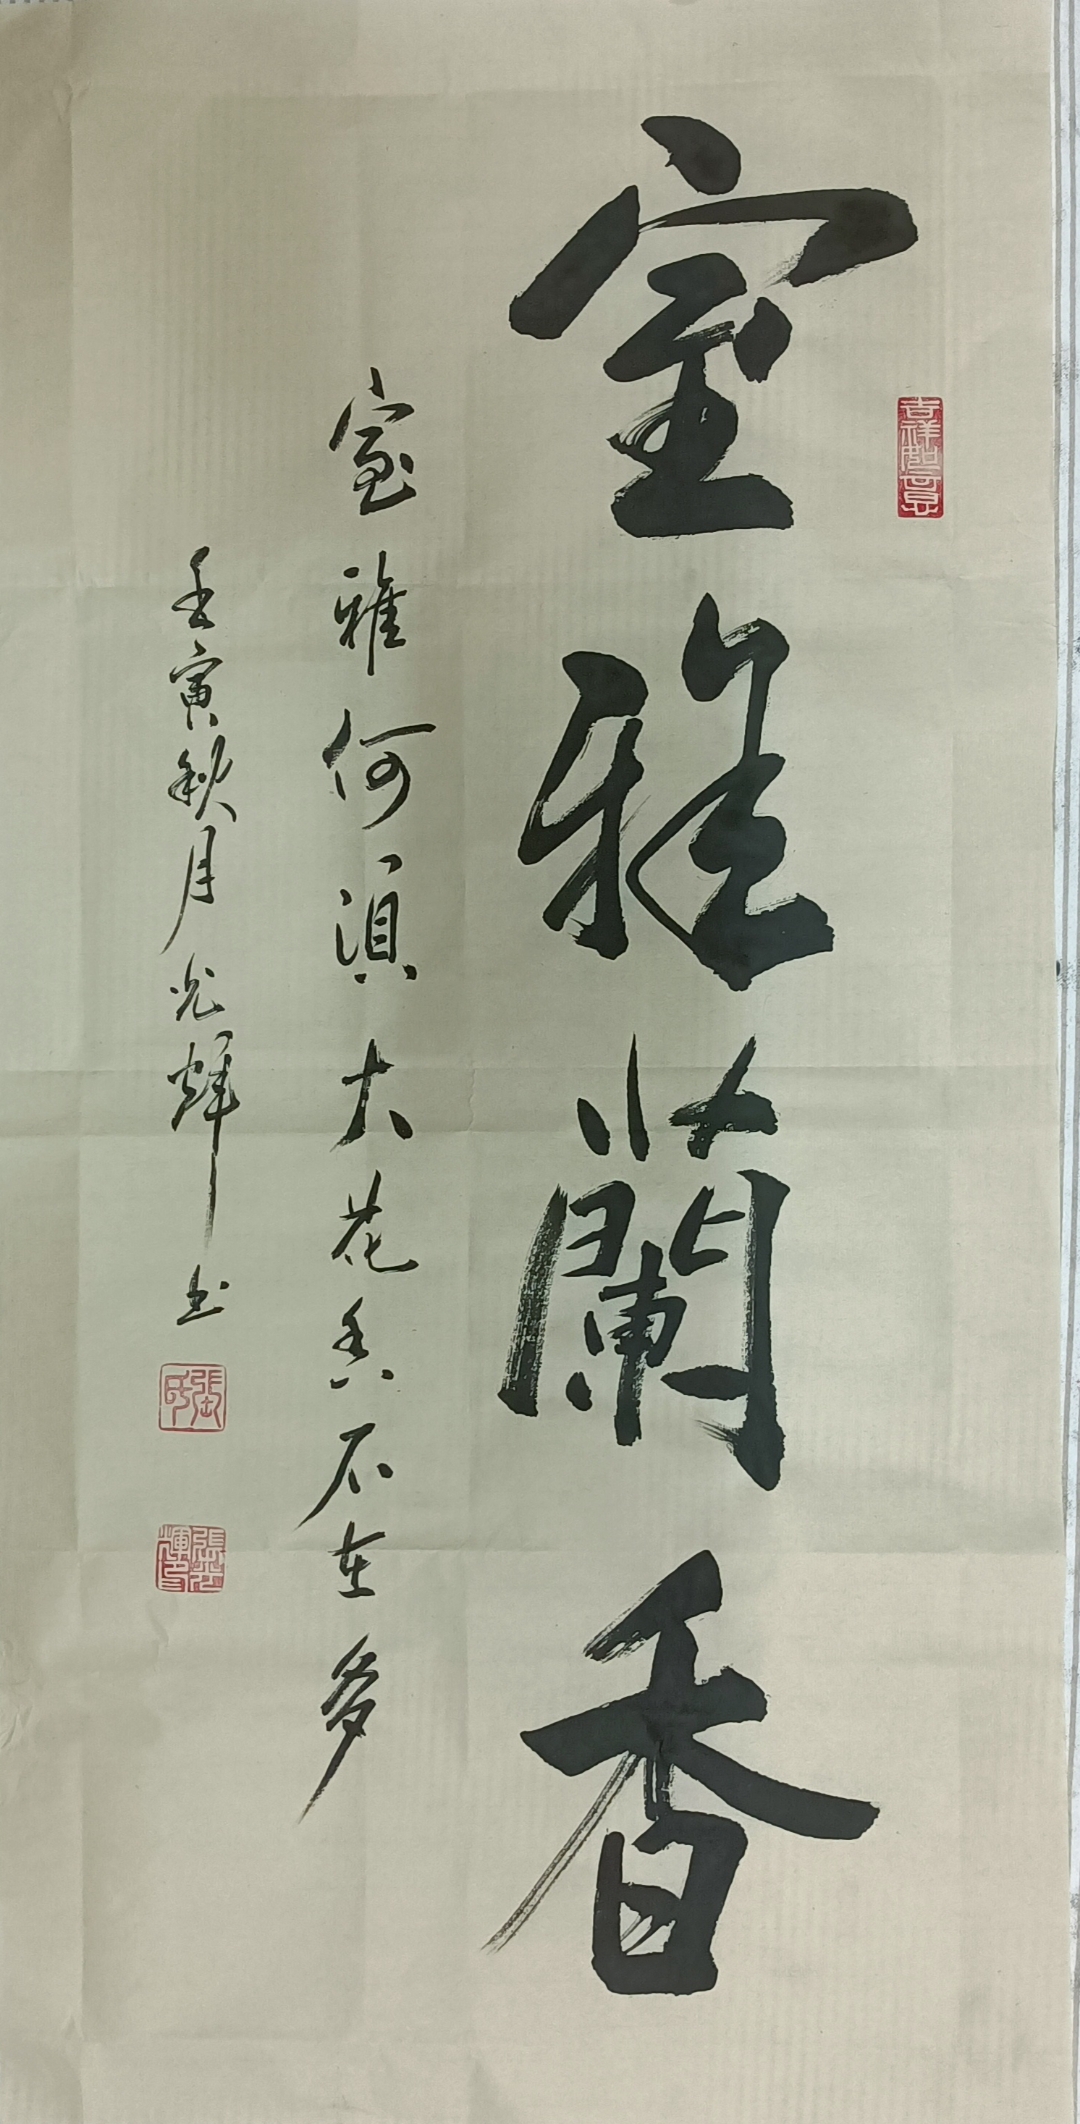 吉祥如意
室雅蘭香
室雅何須大花香不在多
壬寅秋月光輝书
張氏
張光輝印